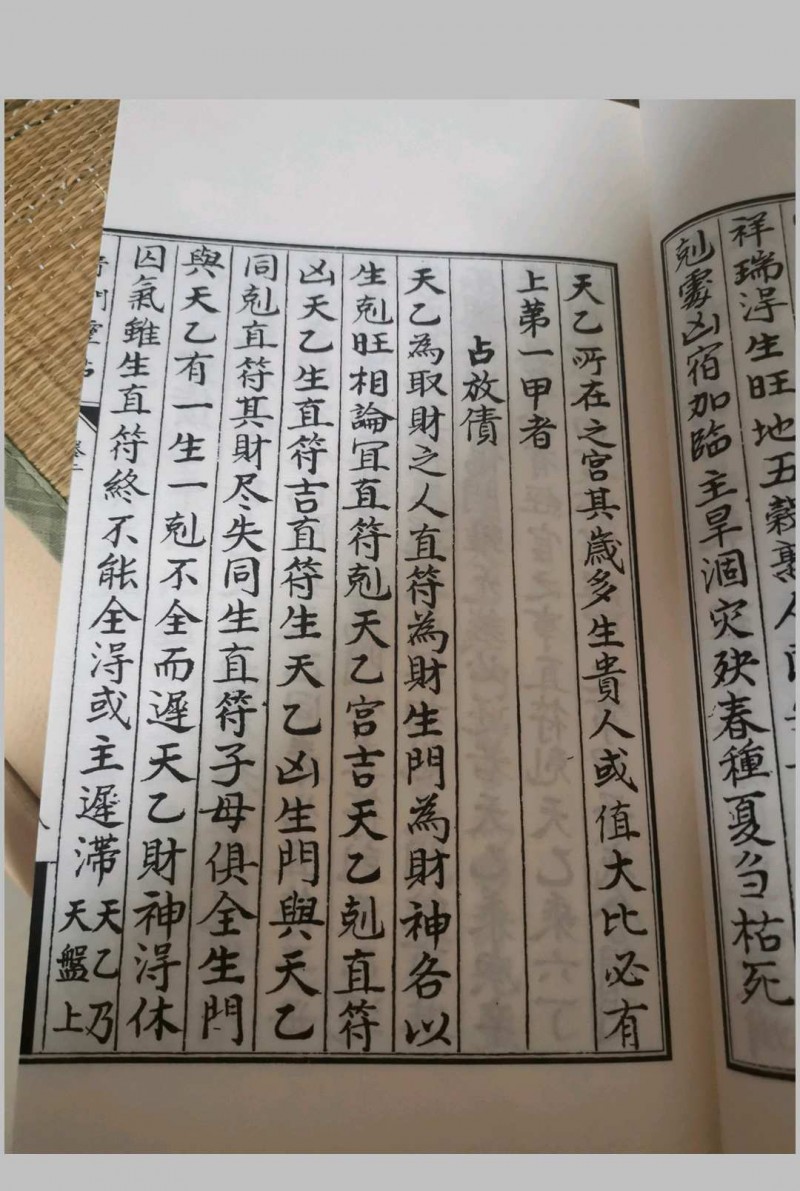 祥瑞淂生旺地五穀熟人
剋處凶宿加臨主旱涸灾殃春種夏刍枯死
天乙所在之宫其歲多生貴人或值大比必有
上第一甲者
占放債
天乙為取財之人直符為財生門為財神各以
生剋旺相論冝直符剋天乙宮吉天乙剋直符
凶天乙生直符吉直符生天乙凶生門與天乙
同剋直符其財尽失同生直符子母俱全生門
與天乙有一生一剋不全而遲天乙財神淂休
囚氣雖生直符終不能全淂或主遲滯天乙乃
天盤上